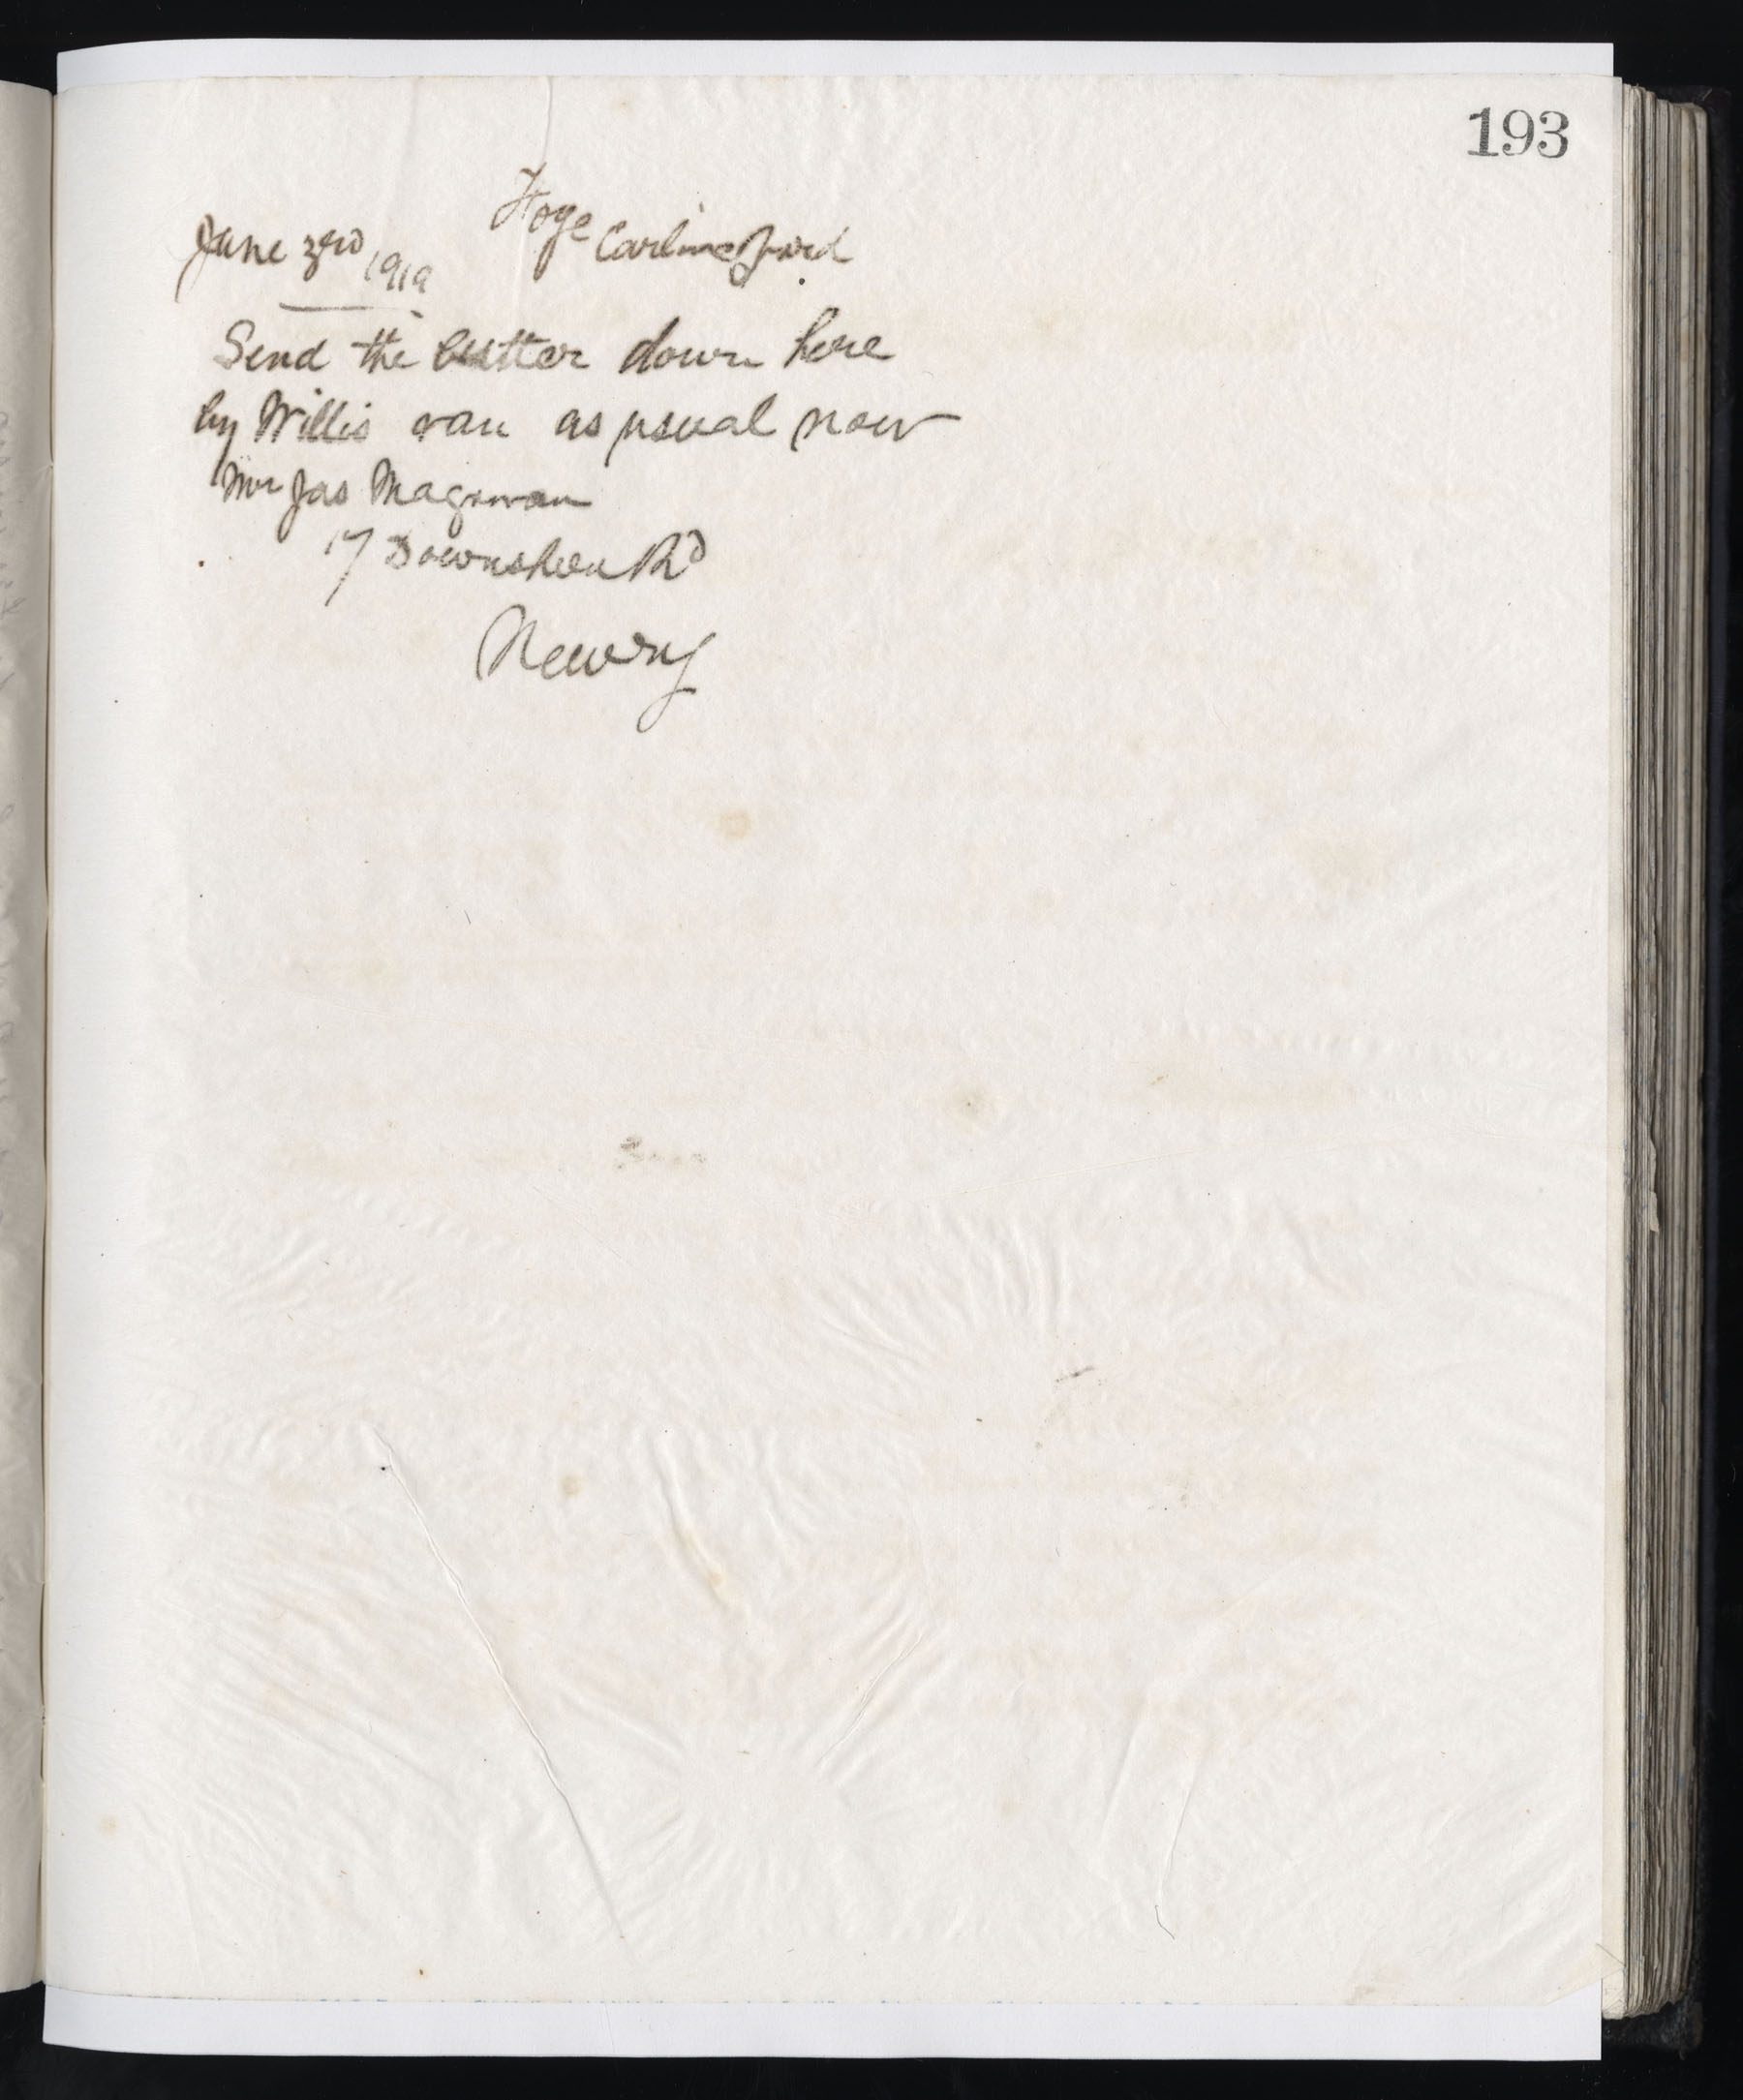 193
June 3rd 1919 Foye Carlingford
Send the butter down here
by Willis van as usual now
Mr Jas Magowan
17 Downshire Rd
Newry